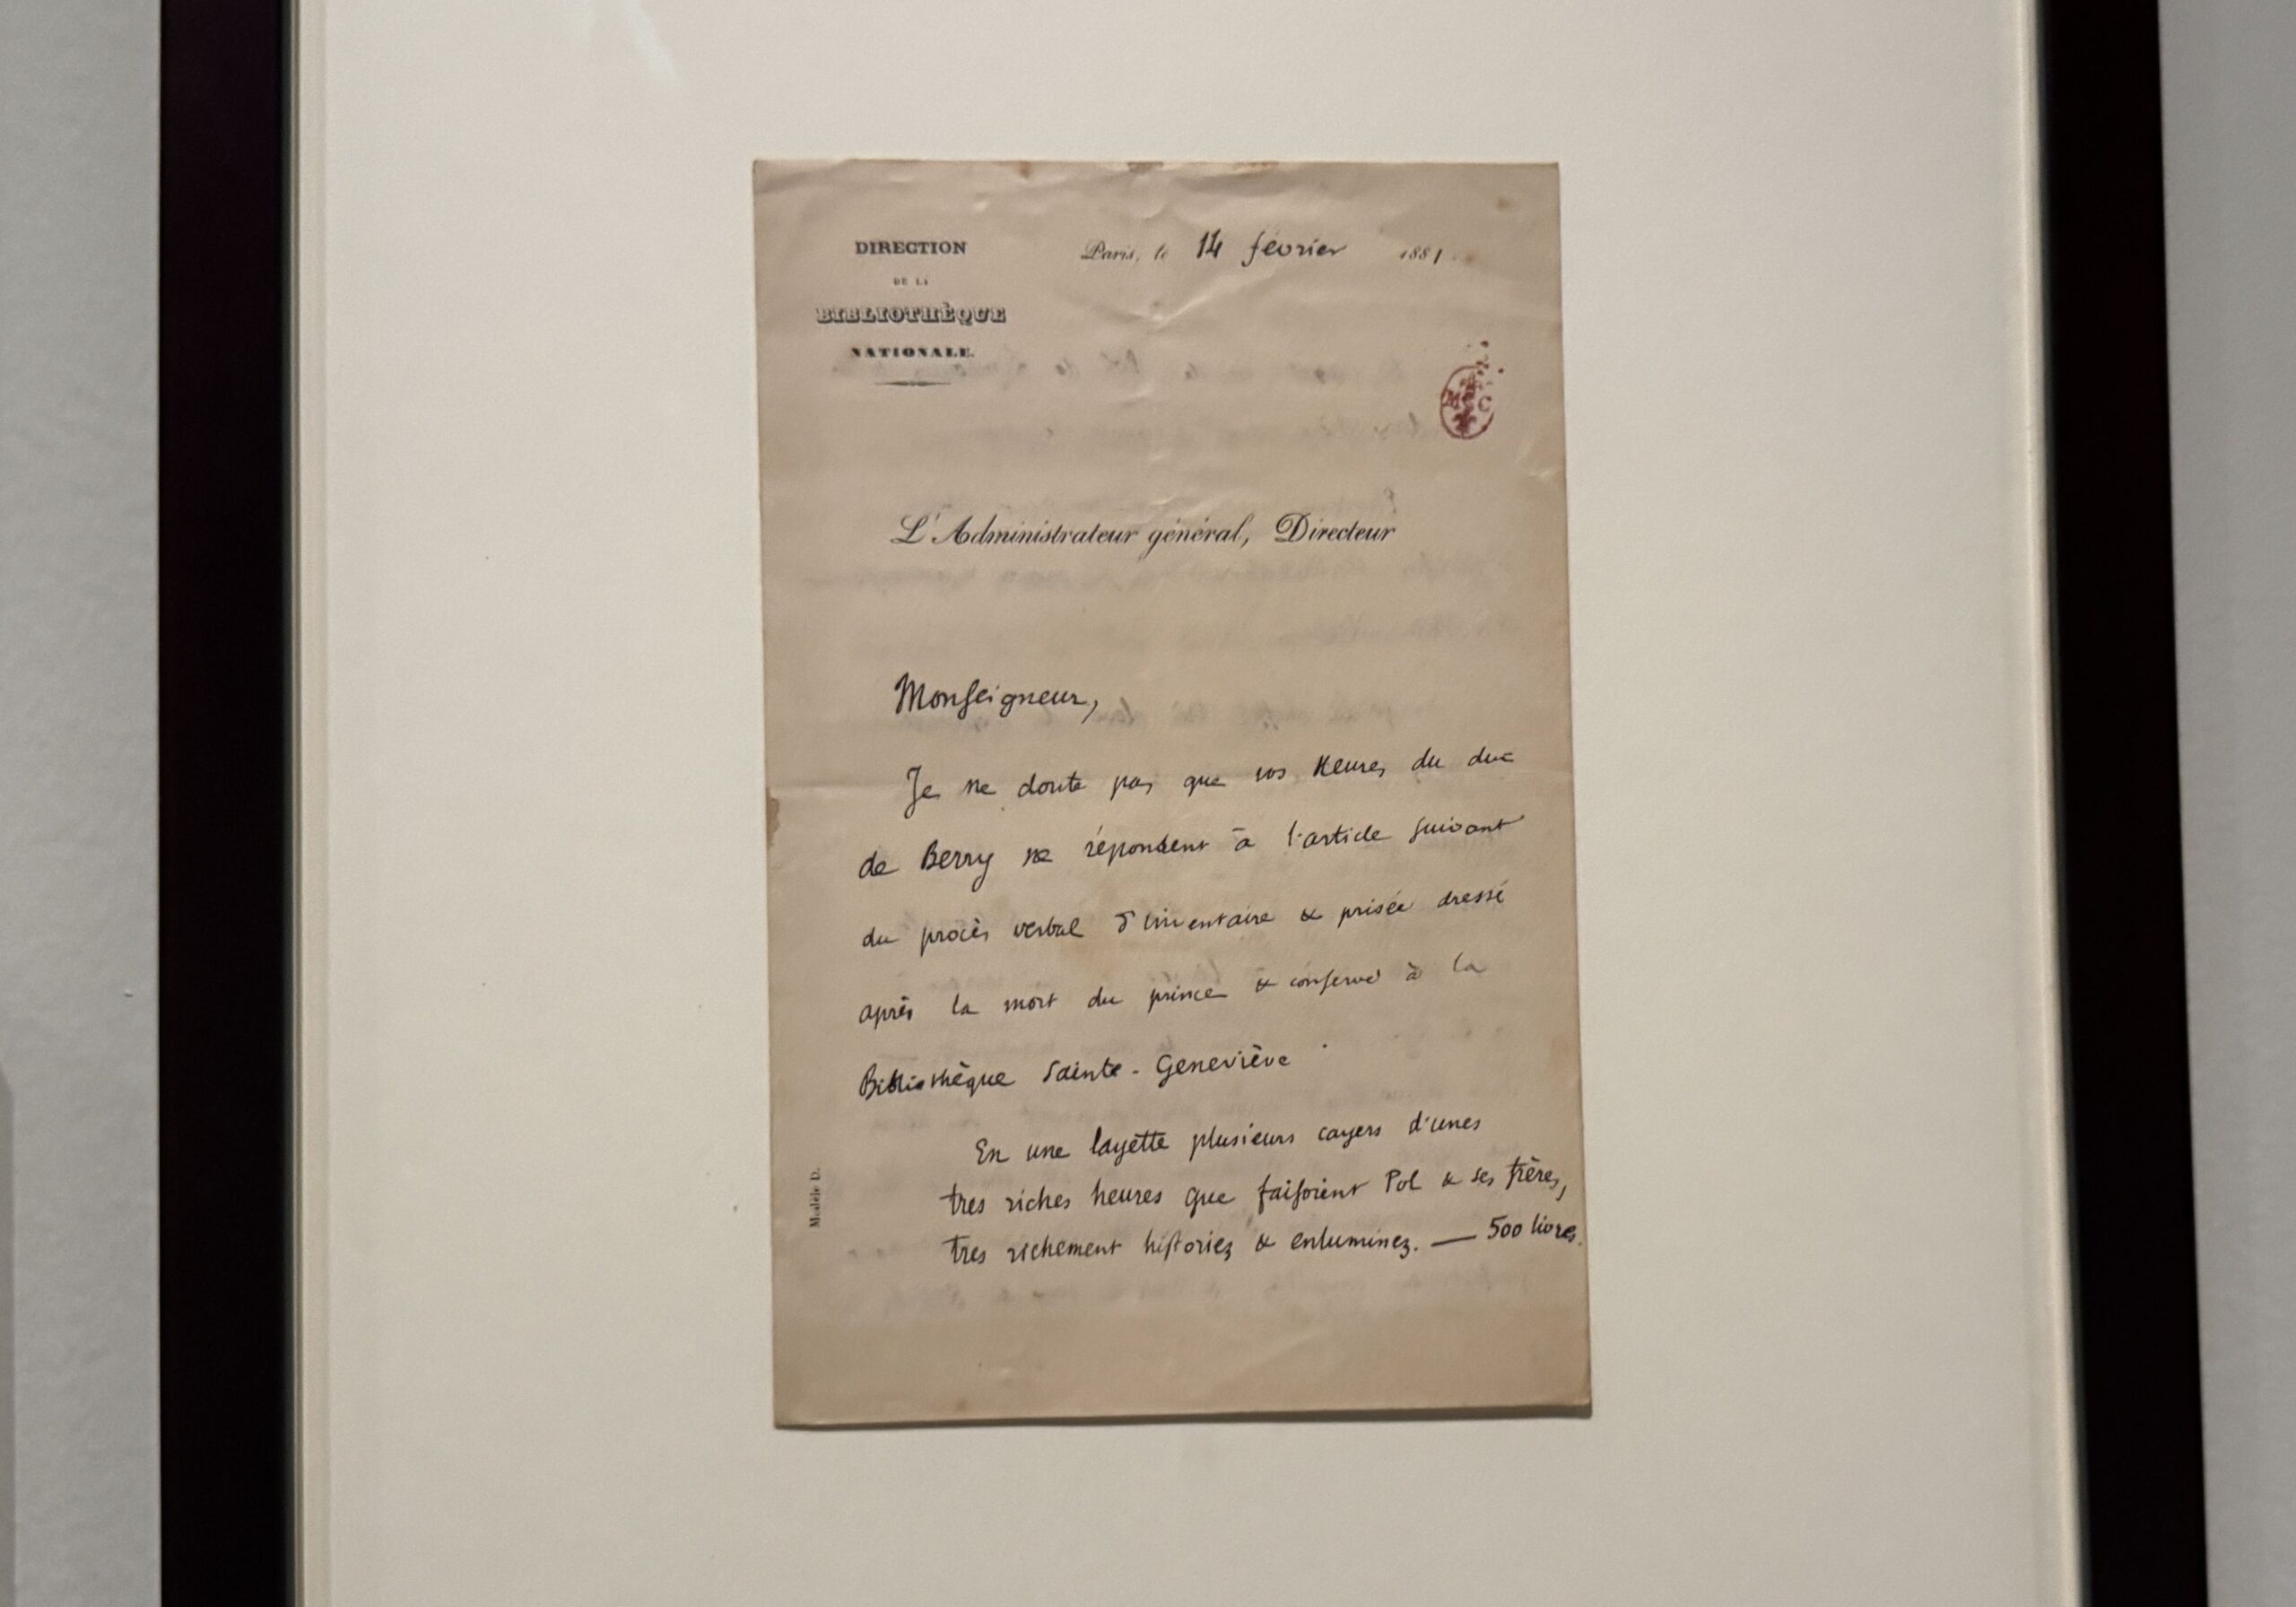 DIRECTION
DE LA
BIBLIOTHÈQUE
NATIONALE.
Paris, le 14 février 1881
M C
L'Administrateur général, Directeur
Monseigneur,
Je ne doute pas que vos Heures du duc
de Berry ne répondent à l'article suivant
du procès verbal d'inventaire & prisée dressé
après la mort du prince & conservé à la
Bibliothèque Sainte-Geneviève
En une layette plusieurs cayers d'unes
tres riches heures que faisoient Pol & ses frères,
tres richement historiez & enluminez. — 500 livres.
Modèle D.